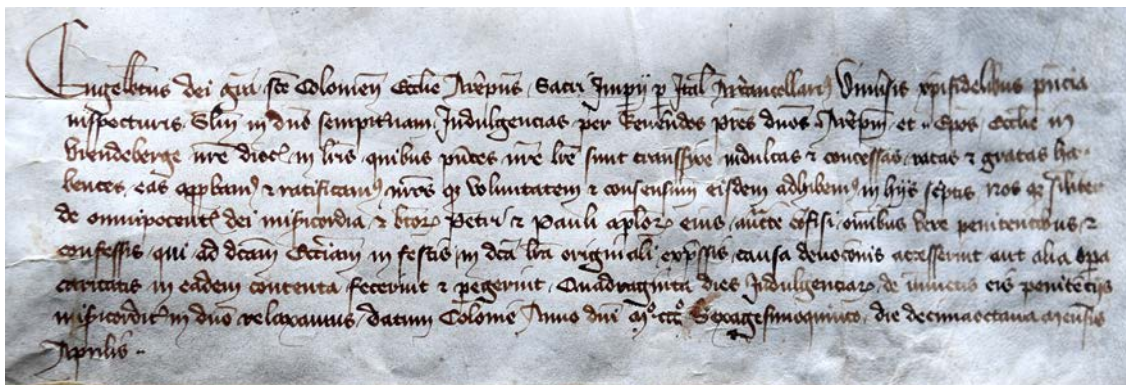 Engelbtus dei gra sce Colonien Ecclie Archiepus, Sacri Impij p Ital Archicancellari9 Univsis xpifidelibus pntia
inspecturis. Slm in dno sempitnam. Indulgencias per Reverendos pres dnos .. Archiepm et .. Epos, Ecclie in
Vrendeberge nre dioc in lris quibus pntes nre lre sunt transfixe indultas & concessas, ratas & gratas ha-
bentes, eas approbam9 & ratificam9 nros q voluntatem & consensum eisdem adhibem9 in hijs scptis. Nos q similiter
de omnipotent dei misericordia, & btor Petri & Pauli aplor eius, aucte cofisi, omibus vere penitentibus &
confessis, qui ad dcam Eccliam in festis in dca lra originali expssis, causa devocionis accesserint aut alia opa
caritatis in eadem contenta fecerint & pegerint, Quadraginta dies Indulgenciar, de iniunctis eis penitecijs
misericordit in dno relaxamus, datum Colonie Anno dni Mo ccco Sexagesimoquinto, die decimaoctava mensis
Aprilis ..